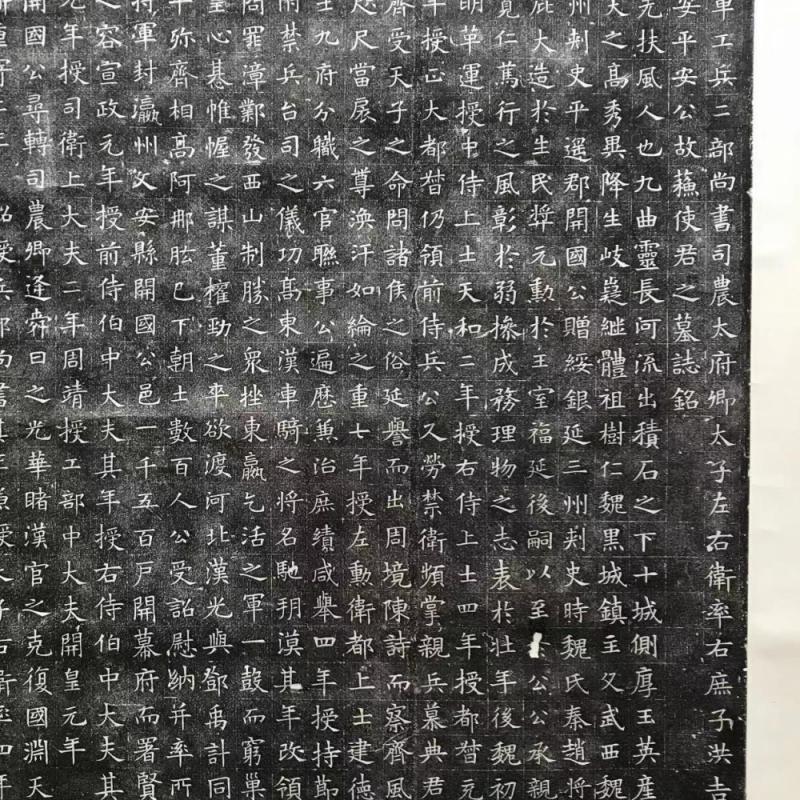 軍工兵二部尚書司農太府卿太子左右衛率右庶子洪吉
安平安公故蘓使君之墓誌銘
元扶風人也九曲靈長河流出積石之下十城側厚玉英產
大之髙秀異降生岐嶷継體祖樹仁魏黑城鎮主父武西魏
州刺史平遥郡開國公贈綏銀延三州刺史時魏氏秦趙將
庇大造於生民奨元勲於王室福延後嗣以至今公公承親
寛仁篤行之風彰於弱操成務理物之志表於壮年後魏初
明革運授中侍上士天和二年授右侍上士四年授都督元
年授正大都督仍領前侍兵公又勞禁衛頻掌親兵慕典君
齊受天子之命問諸侯之俗延譽而出周境陳詩而察齊風
咫尺當扆之尊渙汗如綸之重七年授左勲衛都上士建德
主九府分職六官聯事公遍歷兼治庶績咸舉四年授持節
兵台司之儀功髙東漢車騎之將名馳朔漠其年改領
問罪漳鄴發西山制勝之衆挫東嬴乞活之軍一鼓而窮巢
皇心基帷幄之謀董櫂勁之卒欲渡河北漢光與鄧禹計同
平弥齊相髙阿那肱已下朝士數百人公受詔慰納并率所
將軍封瀛州文安縣開國公邑一千五百戸開幕府而署賢
之容宣政元年授前侍伯中大夫其年授右侍伯中大夫其
元年授司衛上大夫二年周靖授工部中大夫開皇元年
開國公尋轉司農卿逢舜日之光華睹漢官之克復國淵天